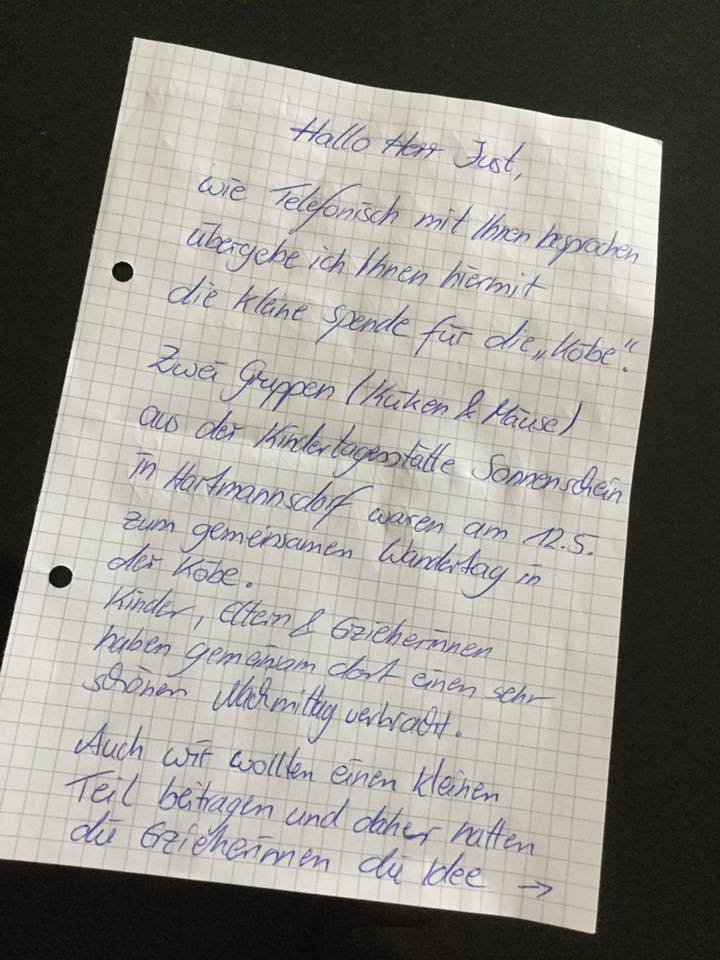 Hallo Herr Just,
wie Telefonisch mit Ihnen besprochen
übergebe ich Ihnen hiermit
die kleine spende für die „Köbe“.
Zwei Gruppen (Küken & Mäuse)
aus der Kindertagesstätte Sonnenschein
in Hartmannsdorf waren am 12.5.
zum gemeinsamen Wandertag in
der Köbe.
Kinder, Eltern & Erzieherinnen
haben gemeinsam dort einen sehr
schönen Nachmittag verbracht.
Auch wir wollten einen kleinen
Teil beitragen und daher hatten
die Erzieherinnen die Idee →